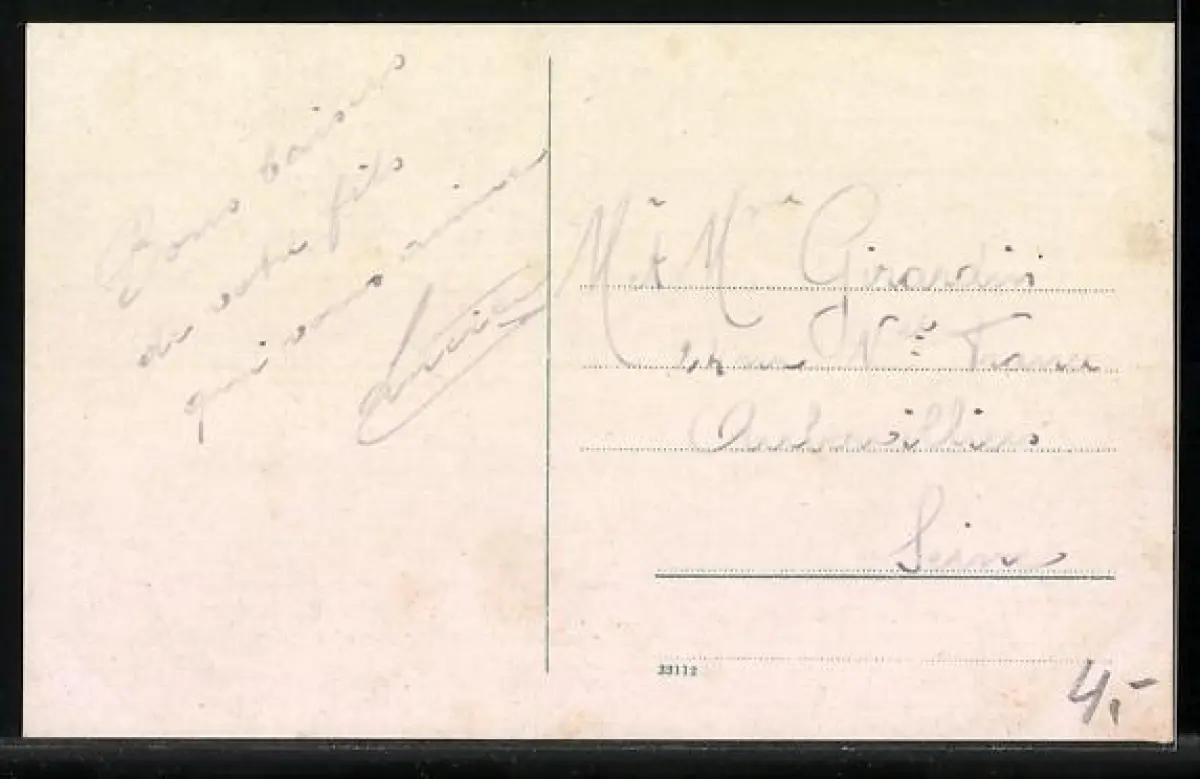 Bons baisers
de votre fils
qui vous aime
Lucien
Mr & Mme Girardin
rue Nlle France
Aubervilliers
Seine
33112
4,-